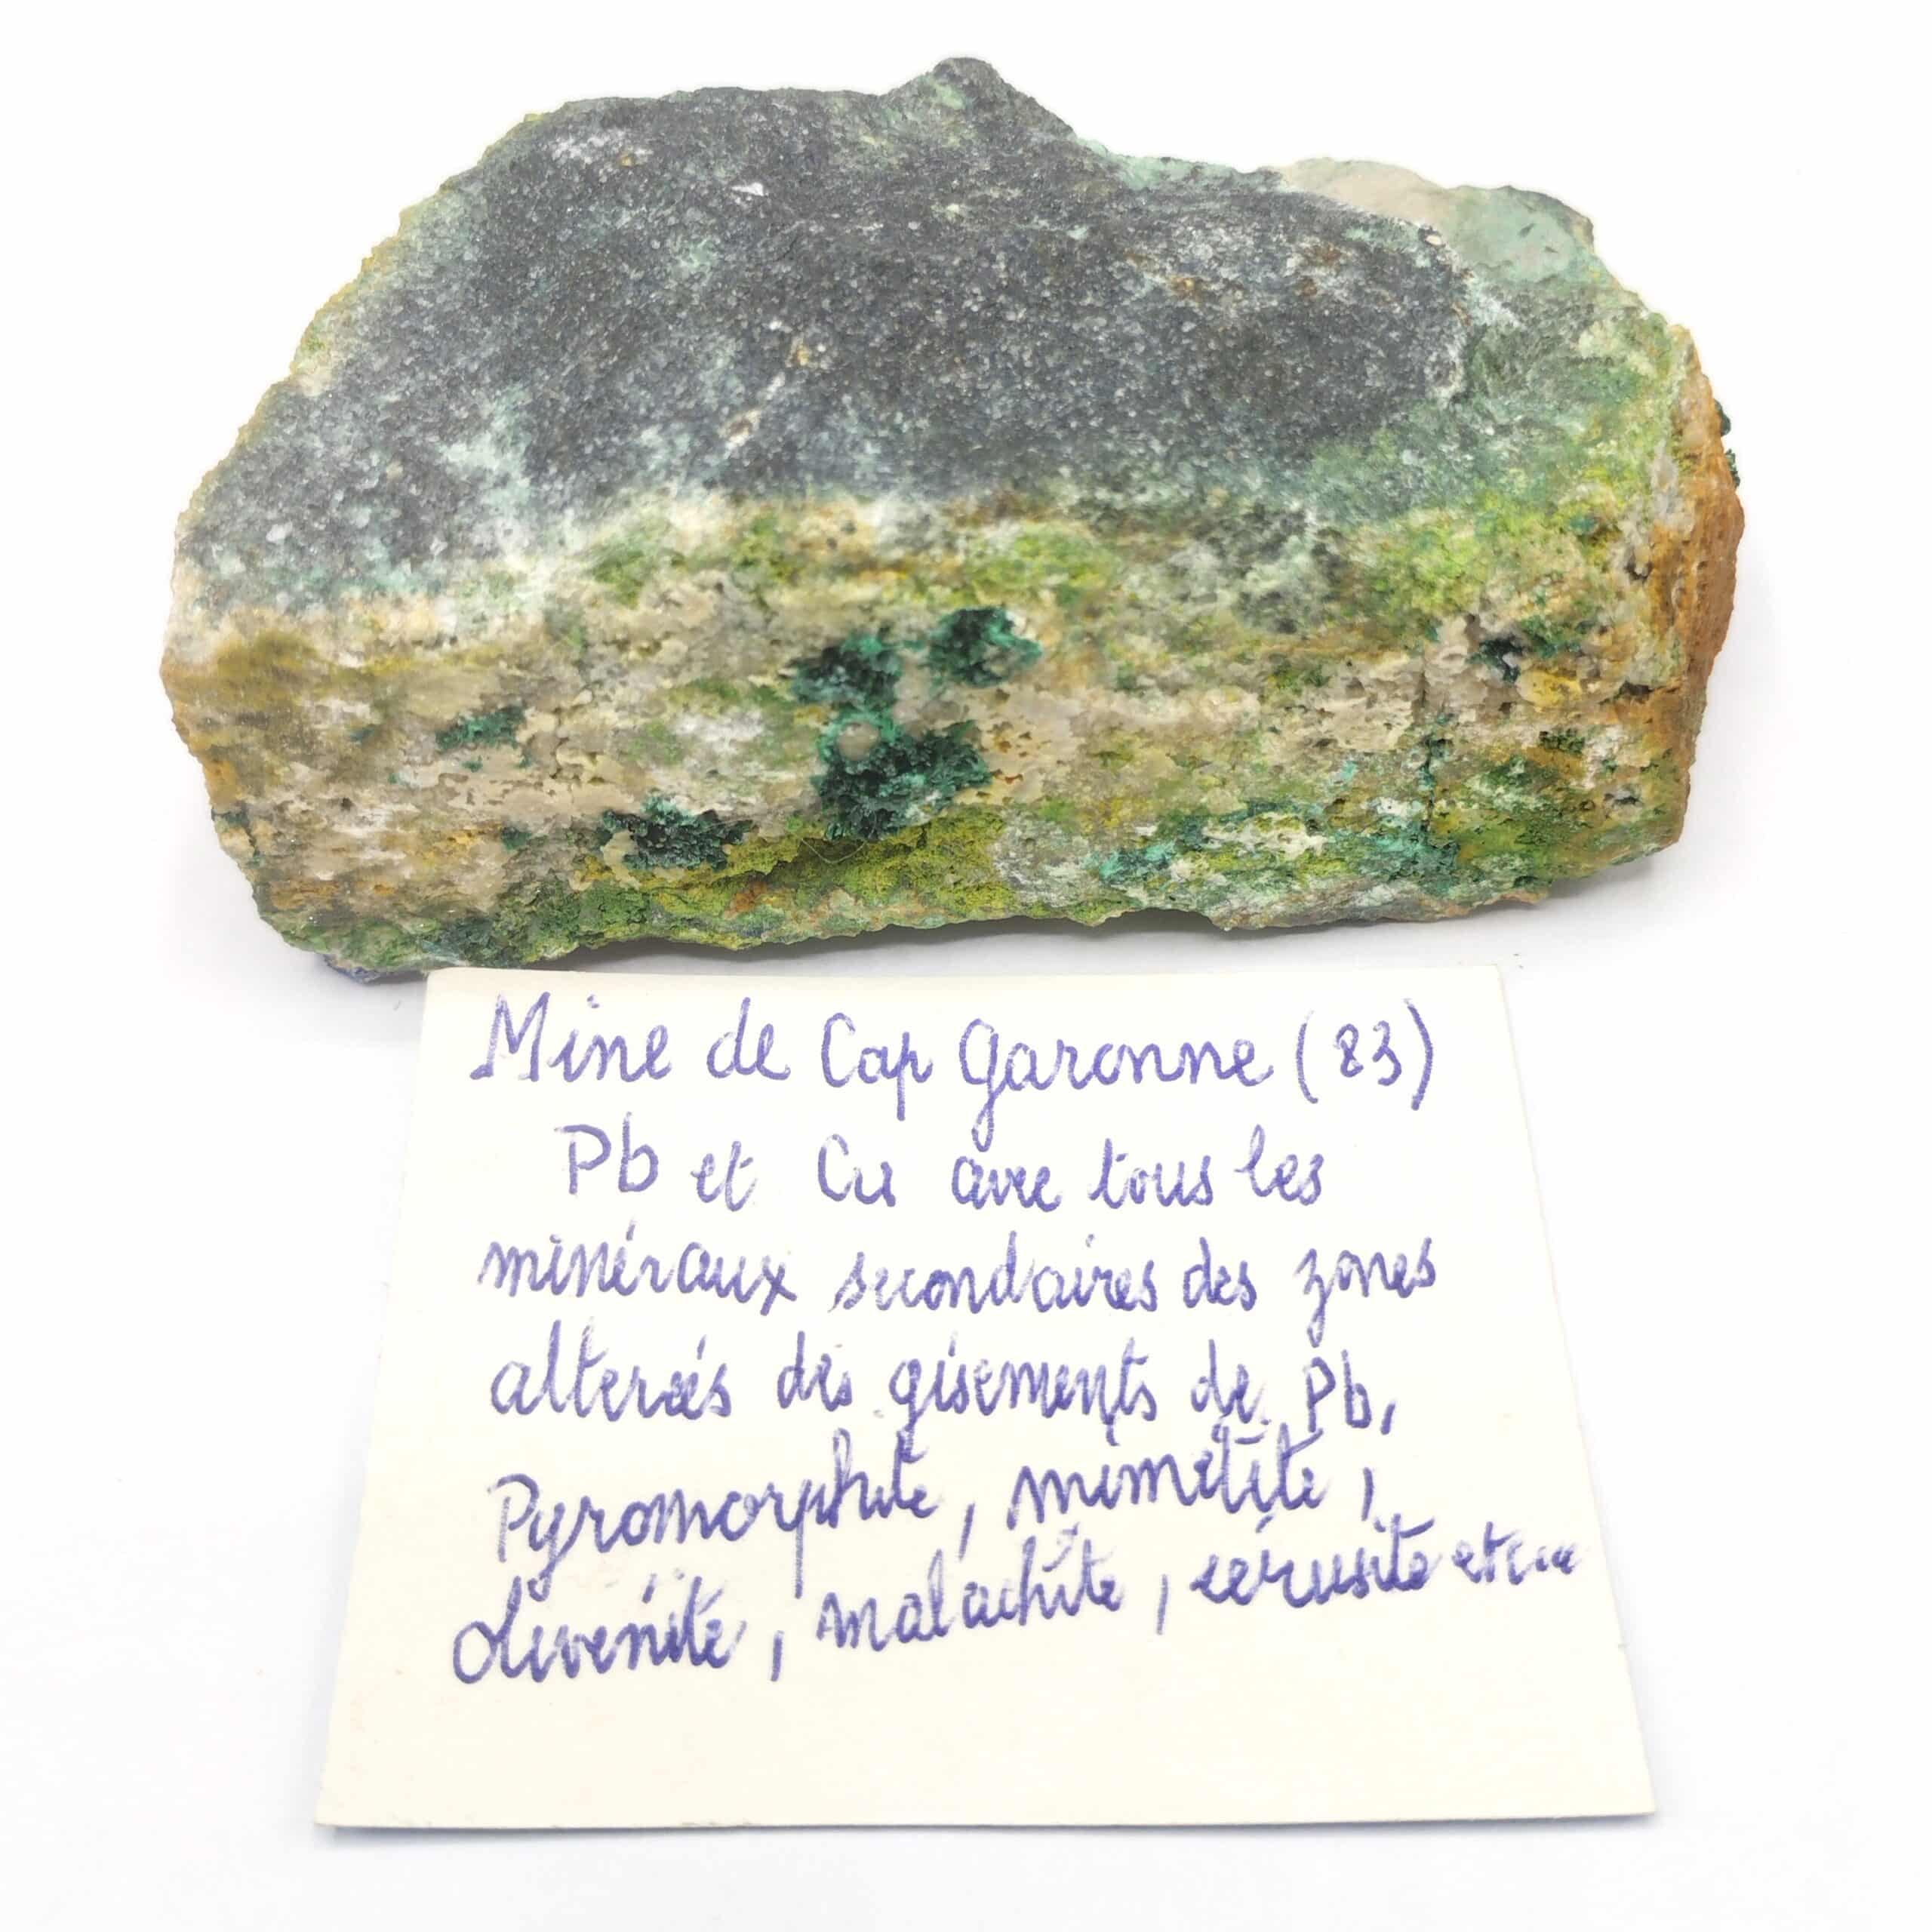 Mine de Cap Garonne (83)
Pb et Cu avec tous les
minéraux secondaires des zones
alterées des gisements de Pb,
Pyromorphite, mimétite,
Olivenite, malachite, cérusite etc...